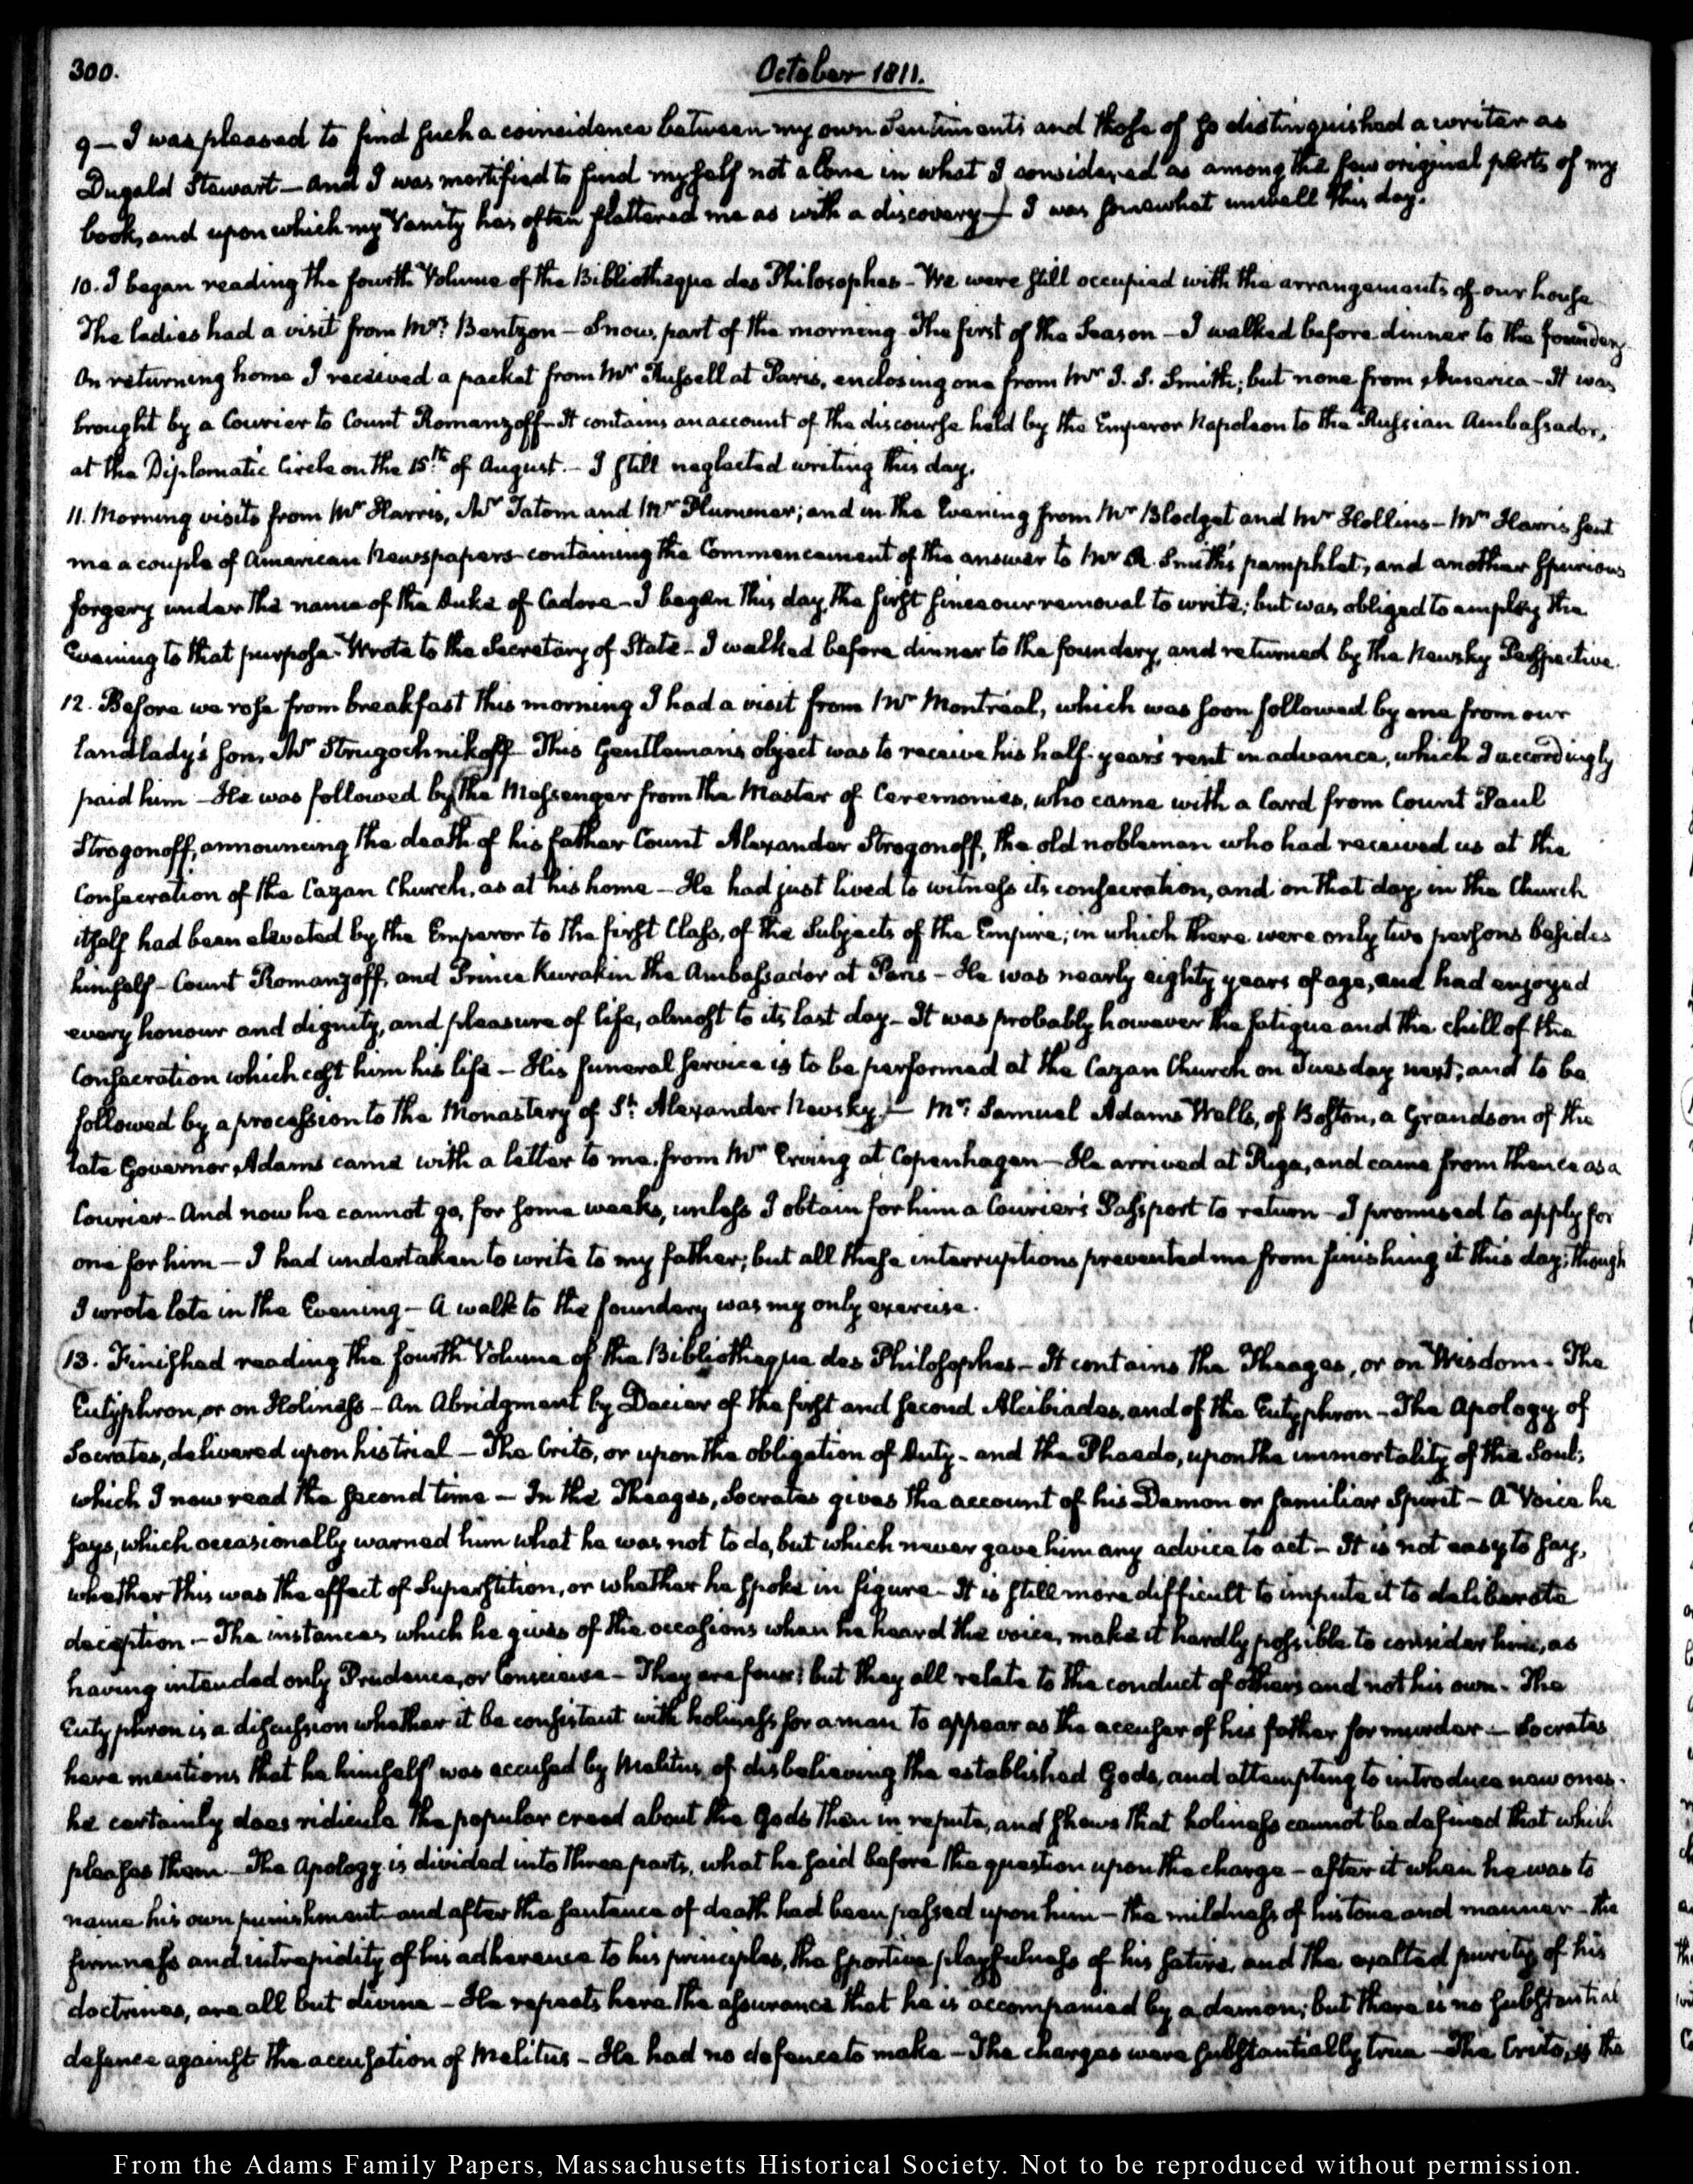 300.
October 1811.
9 — I was pleased to find such a coincidence between my own Sentiments and those of so distinguished a writer as
Dugald Stewart — and I was mortified to find myself not alone in what I considered as among the few original parts of my
book, and upon which my Vanity has often flattered me as with a discovery — I was somewhat unwell this day.
10. I began reading the fourth Volume of the Bibliotheque des Philosophes — We were still occupied with the arrangements of our house
The ladies had a visit from Mrs. Bentzon — Snow, part of the morning The first of the Season — I walked before dinner to the foundery
On returning home I received a packet from Mr Russell at Paris, enclosing one from Mr J. S. Smith; but none from America — It was
brought by a Courier to Count Romanzoff — It contains an account of the discourse held by the Emperor Napoleon to the Russian Ambassador,
at the Diplomatic Circle on the 15th of August. — I still neglected writing this day.
11. Morning visits from Mr Harris, Mr Tatom and Mr Plummer; and in the Evening from Mr Blodget and Mr Hollins — Mr Harris sent
me a couple of American Newspapers containing the Commencement of the answer to Mr R. Smith's pamphlet, and another spurious
forgery under the name of the Duke of Cadore — I began this day the first since our removal to write; but was obliged to employ the
Evening to that purpose — Wrote to the Secretary of State — I walked before dinner to the foundery, and returned by the Newsky Perspective.
12. Before we rose from breakfast this morning I had a visit from Mr Montréal, which was soon followed by one from our
landlady's son, Mr Strugochnikoff — This Gentleman's object was to receive his half-year's rent in advance, which I accordingly
paid him — He was followed by the Messenger from the Master of Ceremonies, who came with a Card from Count Paul
Strogonoff, announcing the death of his father Count Alexander Strogonoff, the old nobleman who had received us at the
Consecration of the Cazan Church, as at his home — He had just lived to witness its consecration, and on that day in the Church
itself had been elevated by the Emperor to the first Class, of the Subjects of the Empire; in which there were only two persons besides
himself — Count Romanzoff, and Prince Kurakin the Ambassador at Paris — He was nearly eighty years of age, and had enjoyed
every honour and dignity, and pleasure of life, almost to its last day — It was probably however the fatigue and the chill of the
Consecration which cost him his life — His funeral service is to be performed at the Cazan Church on Tuesday next; and to be
followed by a procession to the Monastery of St. Alexander Newsky. — Mr. Samuel Adams Wells, of Boston, a Grandson of the
late Governor Adams came with a letter to me from Mr Erving at Copenhagen — He arrived at Riga, and came from thence as a
Courier — And now he cannot go, for some weeks, unless I obtain for him a Courier's Passport to return — I promised to apply for
one for him — I had undertaken to write to my father; but all these interruptions prevented me from finishing it this day; though
I wrote late in the Evening — A walk to the foundery was my only exercise.
13. Finished reading the fourth Volume of the Bibliotheque des Philosophes — It contains the Theages, or on Wisdom — The
Eutyphron, or on Holiness — An Abridgment by Dacier of the first and second Alcibiades, and of the Eutyphron — The Apology of
Socrates, delivered upon his trial — The Crito, or upon the obligation of Duty — and the Phaedo, upon the immortality of the Soul;
which I now read the second time — In the Theages, Socrates gives the account of his Demon or familiar Spirit — A Voice he
says, which occasionally warned him what he was not to do, but which never gave him any advice to act — It is not easy to say,
whether this was the effect of Superstition, or whether he spoke in figure — It is still more difficult to impute it to deliberate
deception — The instances which he gives of the occasions when he heard the voice, make it hardly possible to consider him, as
having intended only Prudence, or Conscience — They are four: but they all relate to the conduct of others and not his own — The
Eutyphron is a discussion whether it be consistent with holiness for a man to appear as the accuser of his father for murder — Socrates
here mentions that he himself was accused by Melitus, of disbelieving the established Gods, and attempting to introduce new ones.
he certainly does ridicule the popular creed about the Gods then in repute, and shews that holiness cannot be defined that which
pleases them — The Apology is divided into three parts, what he said before the question upon the charge — after it when he was to
name his own punishment — and after the sentence of death had been passed upon him — The mildness of his tone and manner — the
firmness and intrepidity of his adherence to his principles, the sportive playfulness of his satire, and the exalted purity of his
doctrines, are all but divine — He repeats here the assurance that he is accompanied by a demon; but there is no substantial
defence against the accusation of Melitus — He had no defence to make — The charges were substantially true — The Crito, is the
From the Adams Family Papers, Massachusetts Historical Society. Not to be reproduced without permission.